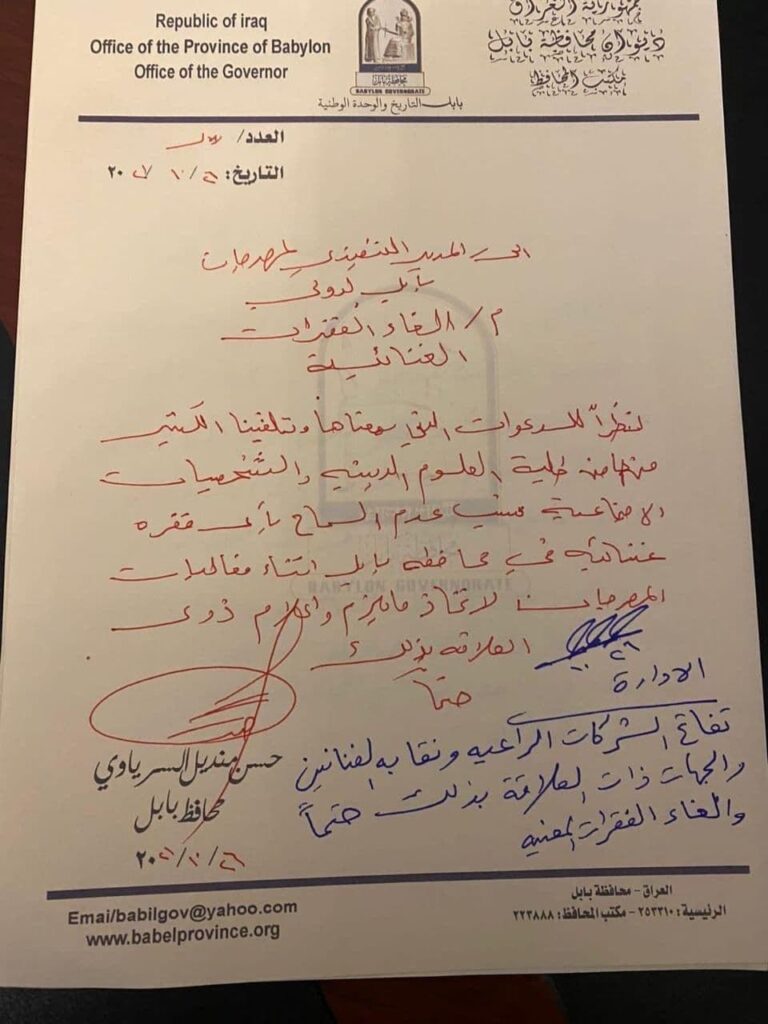 Republic of iraq
Office of the Province of Babylon
Office of the Governor
جمهورية العراق
ديوان محافظة بابل
مكتب المحافظ
محافظة بابل
BABYLON GOVERNORATE
بابل التاريخ والوحدة الوطنية
العدد/
التاريخ: ٢٦/١٠/٢٠٢١
الى المدير التنفيذي لمهرجان
بابل لدولي
م/ الغاء الفقرات
الغنائية
نظراً للدعوات التي سمعناها وتلقينا الكثير
منها من طلبة العلوم الدينيه والشخصيات
الاجتماعية عدم السماح بأي فقره
غنائيه في محافظه بابل اثناء فعاليات
المهرجان لاتخاذ مايلزم واعلام ذوي
العلاقه بذلك
حتماً
حسن منديل السرياوي
محافظ بابل
٢٦/١٠/٢٠٢١
الادارة
تفاتح الشركات الراعيه ونقابه الفنانين
والجهات ذات العلاقة بذلك حتماً
والغاء الفقرات المعنيه
BABYLON GOVERNORATE
Emai/babilgov@yahoo.com
www.babelprovince.org
العراق - محافظة بابل
الرئيسية: ٢٥٣٣١٠ - مكتب المحافظ: ٢٢٣٨٨٨